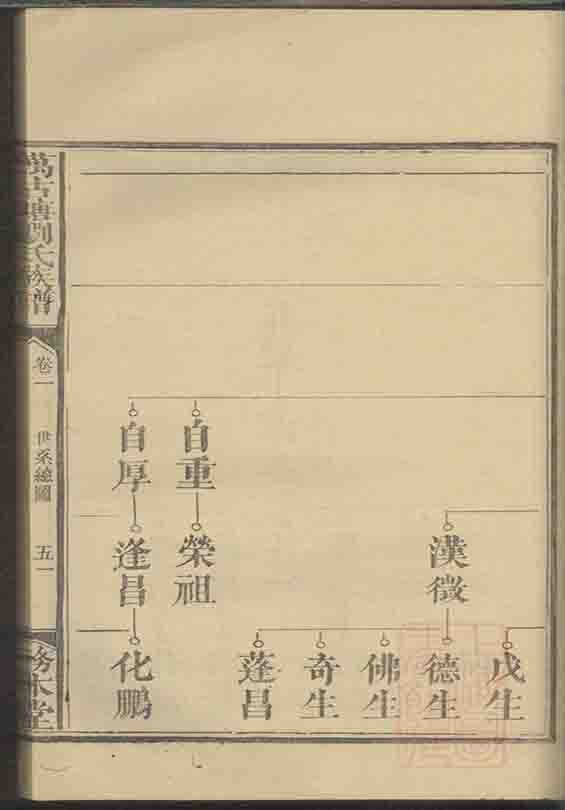 戊生
漢徵
德生
佛生
奇生
蓬昌
自重
榮祖
自厚
逢昌
化鵬
萬古塘劉氏族譜
卷一
世系總圖
五一
務本堂